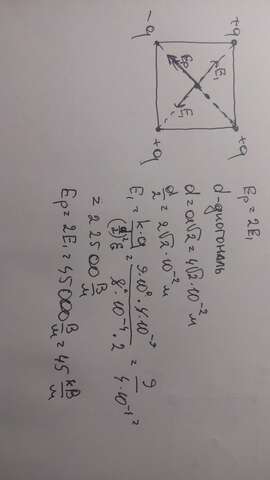 -q
+q
Eр
E₁
E₁
+q
+q
Eр = 2E₁
d-диагональ
d = a√2 = 4√2·10⁻² м
d/2 = 2√2·10⁻² м
E₁ = k·q/(d/2)²ε = 9·10⁹·4·10⁻⁹/8·10⁻⁴·2 = 9/4·10⁻⁴ =
= 22500 В/м
Eр = 2E₁ = 45000 В/м = 45 кВ/м